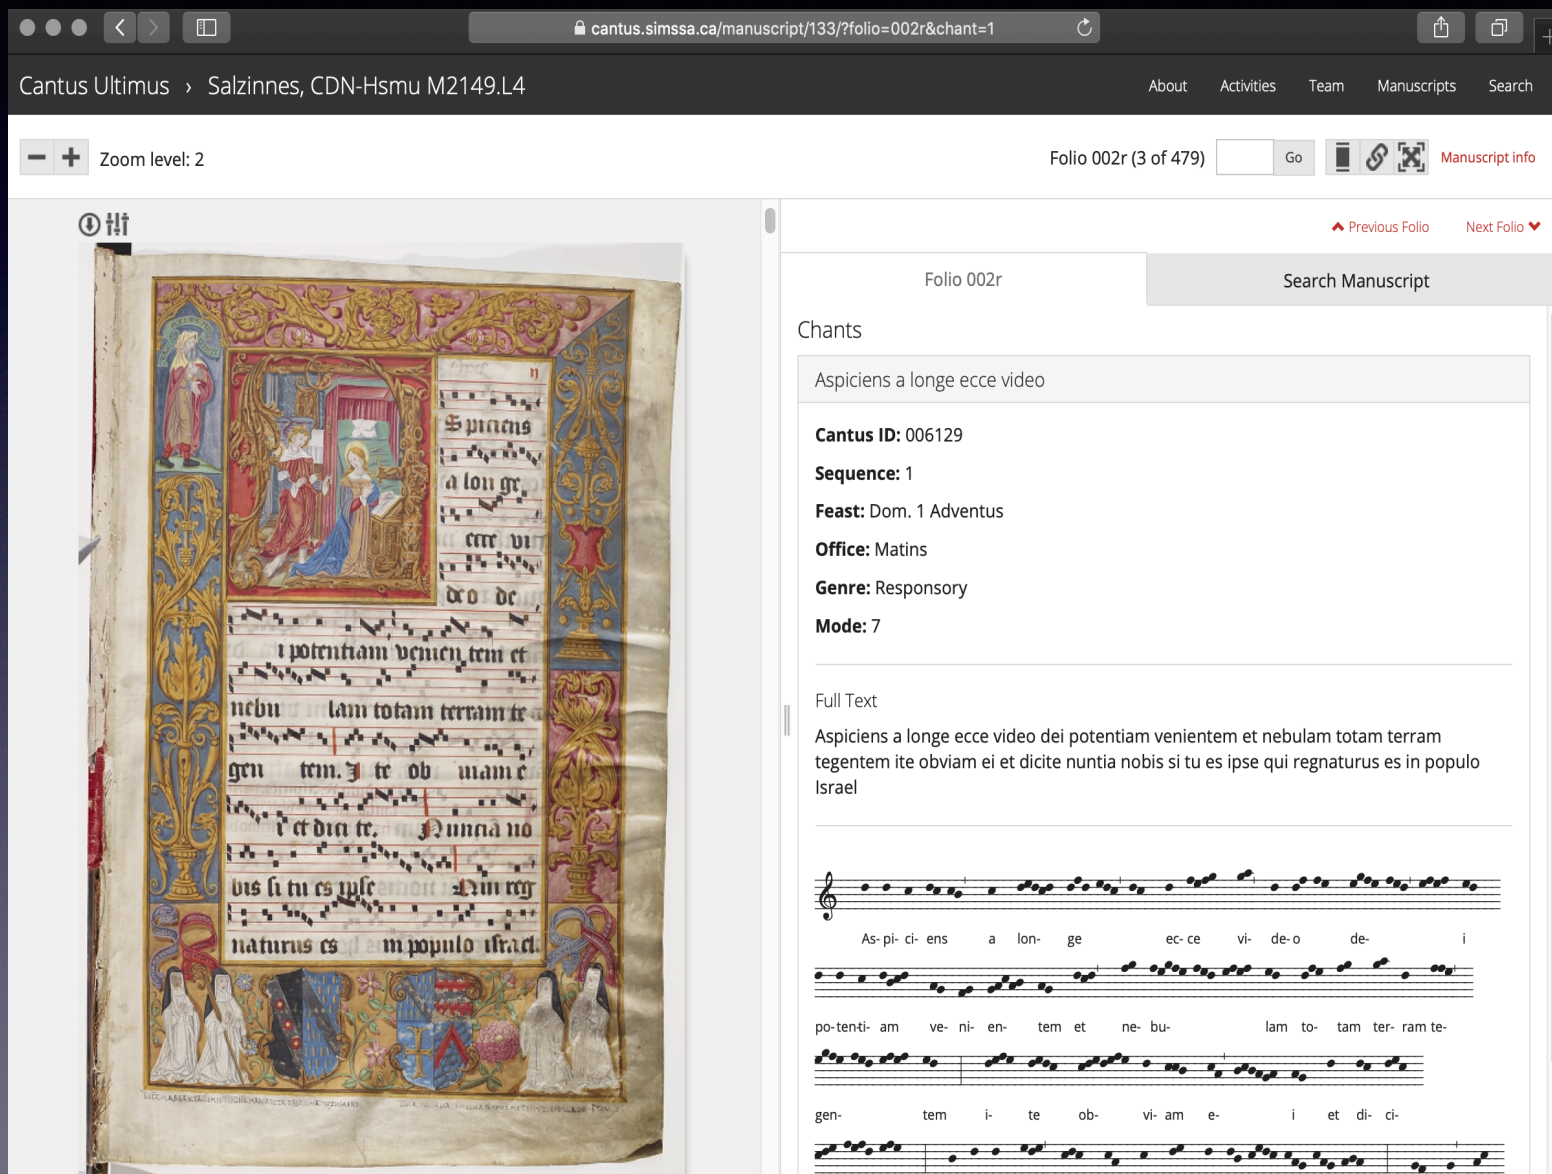 cantus.simssa.ca/manuscript/133/?folio=002r&chant=1
Cantus Ultimus › Salzinnes, CDN-Hsmu M2149.L4
About Activities Team Manuscripts Search
Zoom level: 2
Folio 002r (3 of 479) Go Manuscript info
Previous Folio Next Folio
n
Spiciens
a lon ge
ecce vi
de o de
i potentiam venien tem et
nebu lam totam terram te
gen tem. I te ob uiam e
i et dici te. Nuncia no
bis si tu es ipse Qui reg
naturus es in populo israel.
Folio 002r Search Manuscript
Chants
Aspiciens a longe ecce video
Cantus ID: 006129
Sequence: 1
Feast: Dom. 1 Adventus
Office: Matins
Genre: Responsory
Mode: 7
Full Text
Aspiciens a longe ecce video dei potentiam venientem et nebulam totam terram
tegentem ite obviam ei et dicite nuntia nobis si tu es ipse qui regnaturus es in populo
Israel
As- pi- ci- ens a lon- ge ec- ce vi- de- o de- i
po- ten- ti- am ve- ni- en- tem et ne- bu- lam to- tam ter- ram te-
gen- tem i- te ob- vi- am e- i et di- ci-